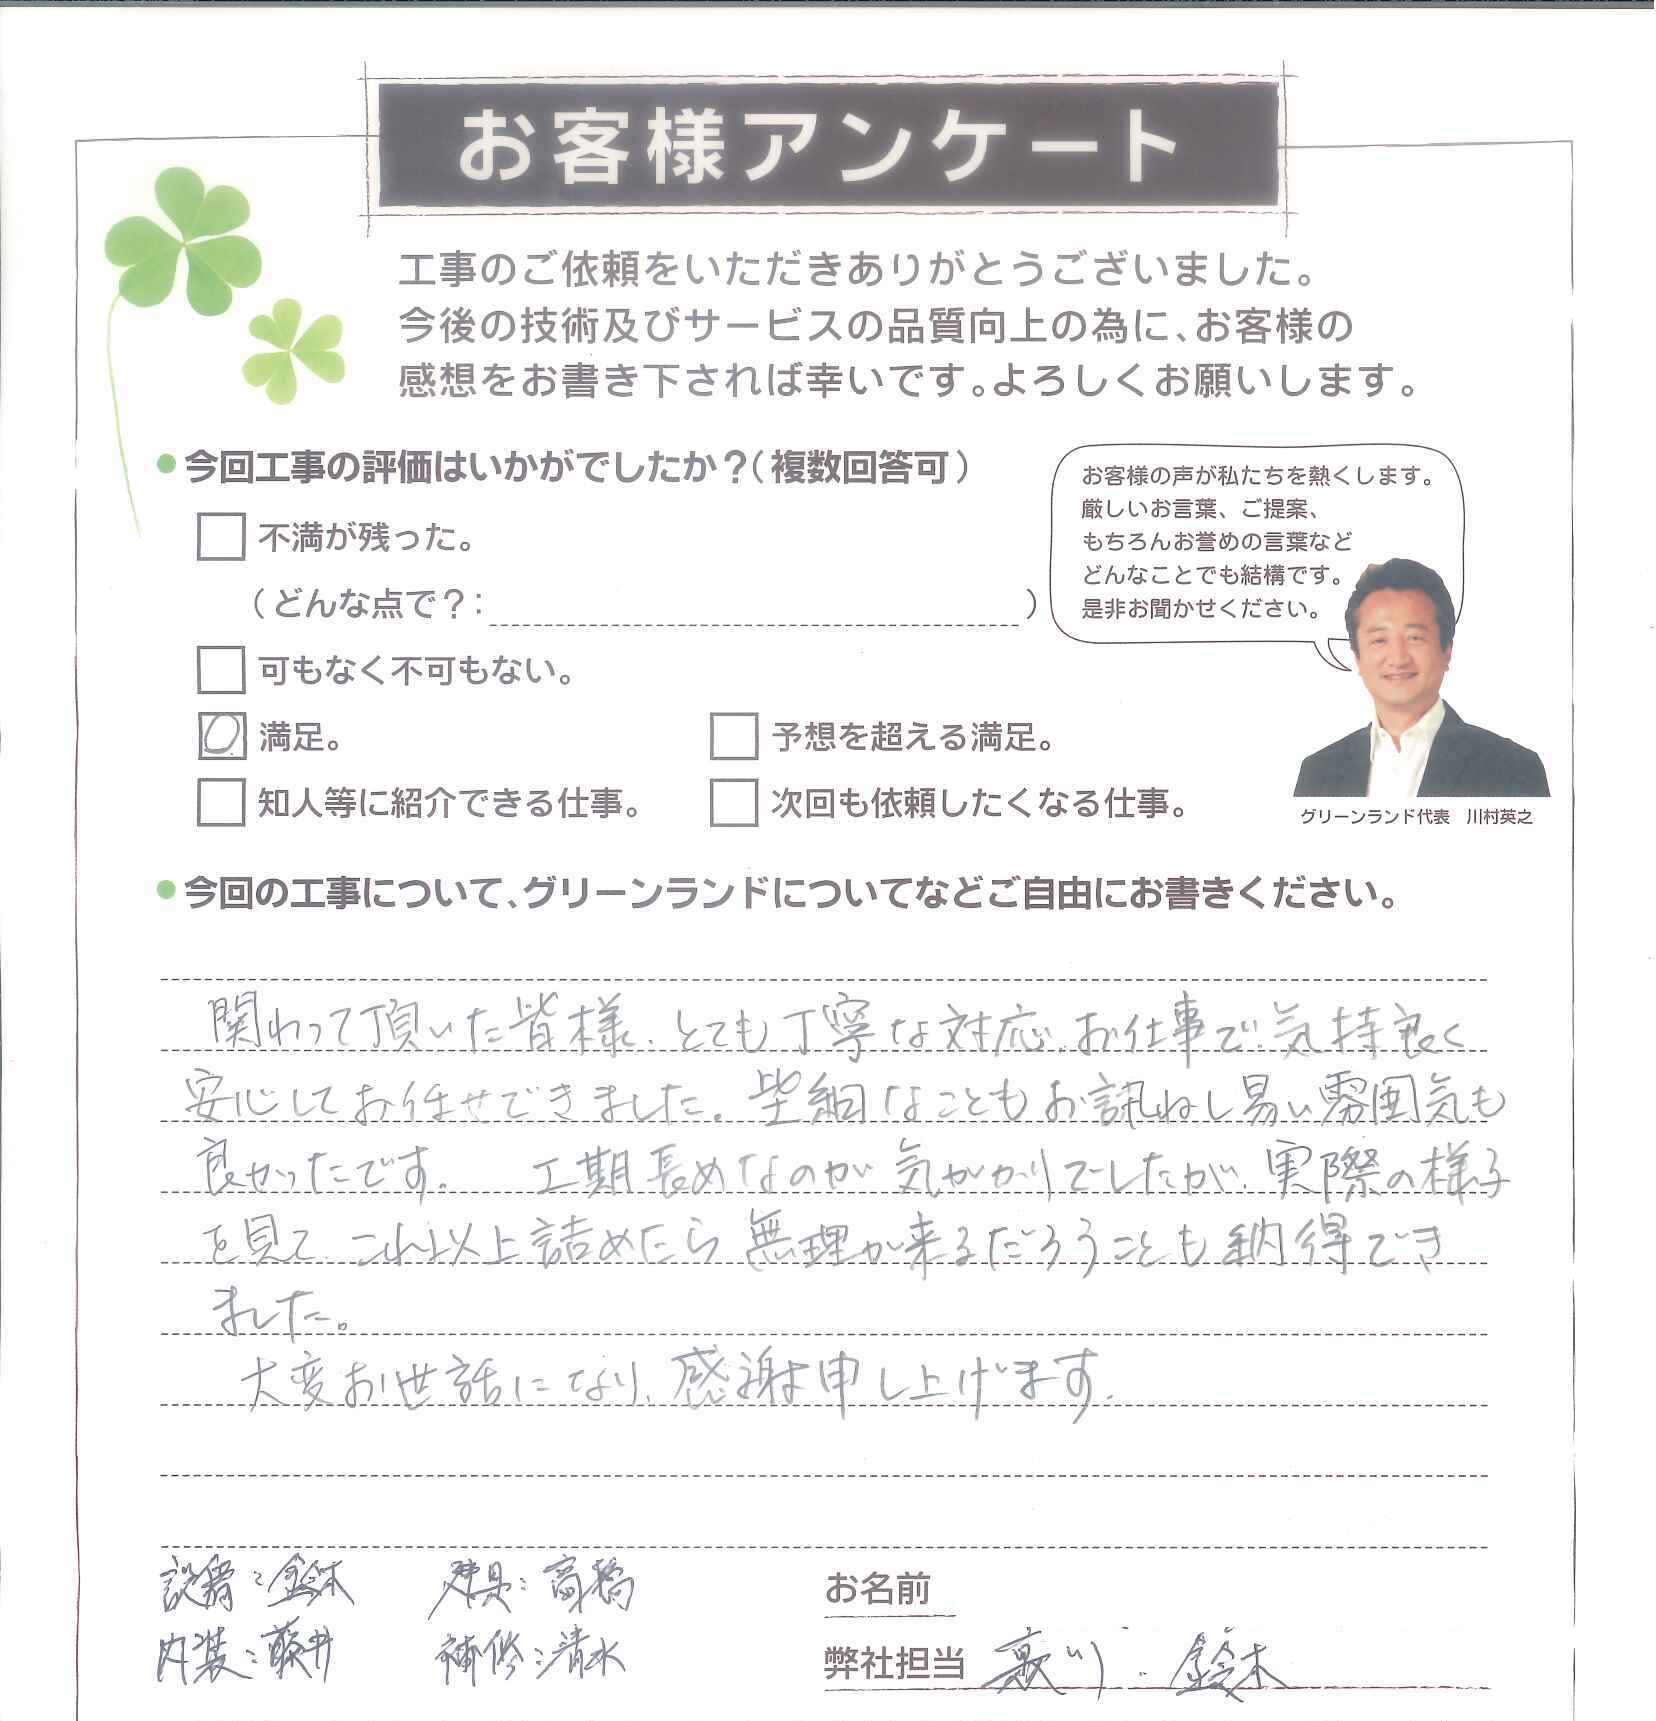 お客様アンケート
工事のご依頼をいただきありがとうございました。
今後の技術及びサービスの品質向上の為に、お客様の
感想をお書き下されば幸いです。よろしくお願いします。
今回工事の評価はいかがでしたか？（複数回答可）
不満が残った。
（どんな点で？：　）
可もなく不可もない。
満足。
予想を超える満足。
知人等に紹介できる仕事。
次回も依頼したくなる仕事。
お客様の声が私たちを熱くします。
厳しいお言葉、ご提案、
もちろんお誉めの言葉など
どんなことでも結構です。
是非お聞かせください。
グリーンランド代表　川村英之
今回の工事について、グリーンランドについてなどご自由にお書きください。
関わって頂いた皆様、とても丁寧な対応、お仕事で、気持良く
安心してお任せできました。些細なこともお訊ねし易い雰囲気も
良かったです。　工期長めなのが気がかりでしたが、実際の様子
を見て、これ以上詰めたら無理が来るだろうことも納得でき
ました。
大変お世話になり、感謝申し上げます。
設備：鈴木　建具：高橋
内装：藤井　補修：清水
お名前
弊社担当　鈴木